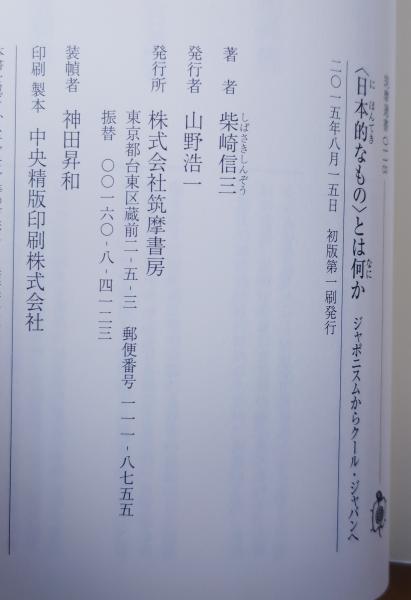 筑摩選書 0118
〈日本的なもの〉とは何か ジャポニスムからクール・ジャパンへ
にほんてき
なに
二〇一五年八月一五日 初版第一刷発行
著者 柴崎信三
しばさきしんぞう
発行者 山野浩一
発行所 株式会社筑摩書房
東京都台東区蔵前二-五-三 郵便番号 一一一-八七五五
振替 〇〇一六〇-八-四一二三
装幀者 神田昇和
印刷 製本 中央精版印刷株式会社